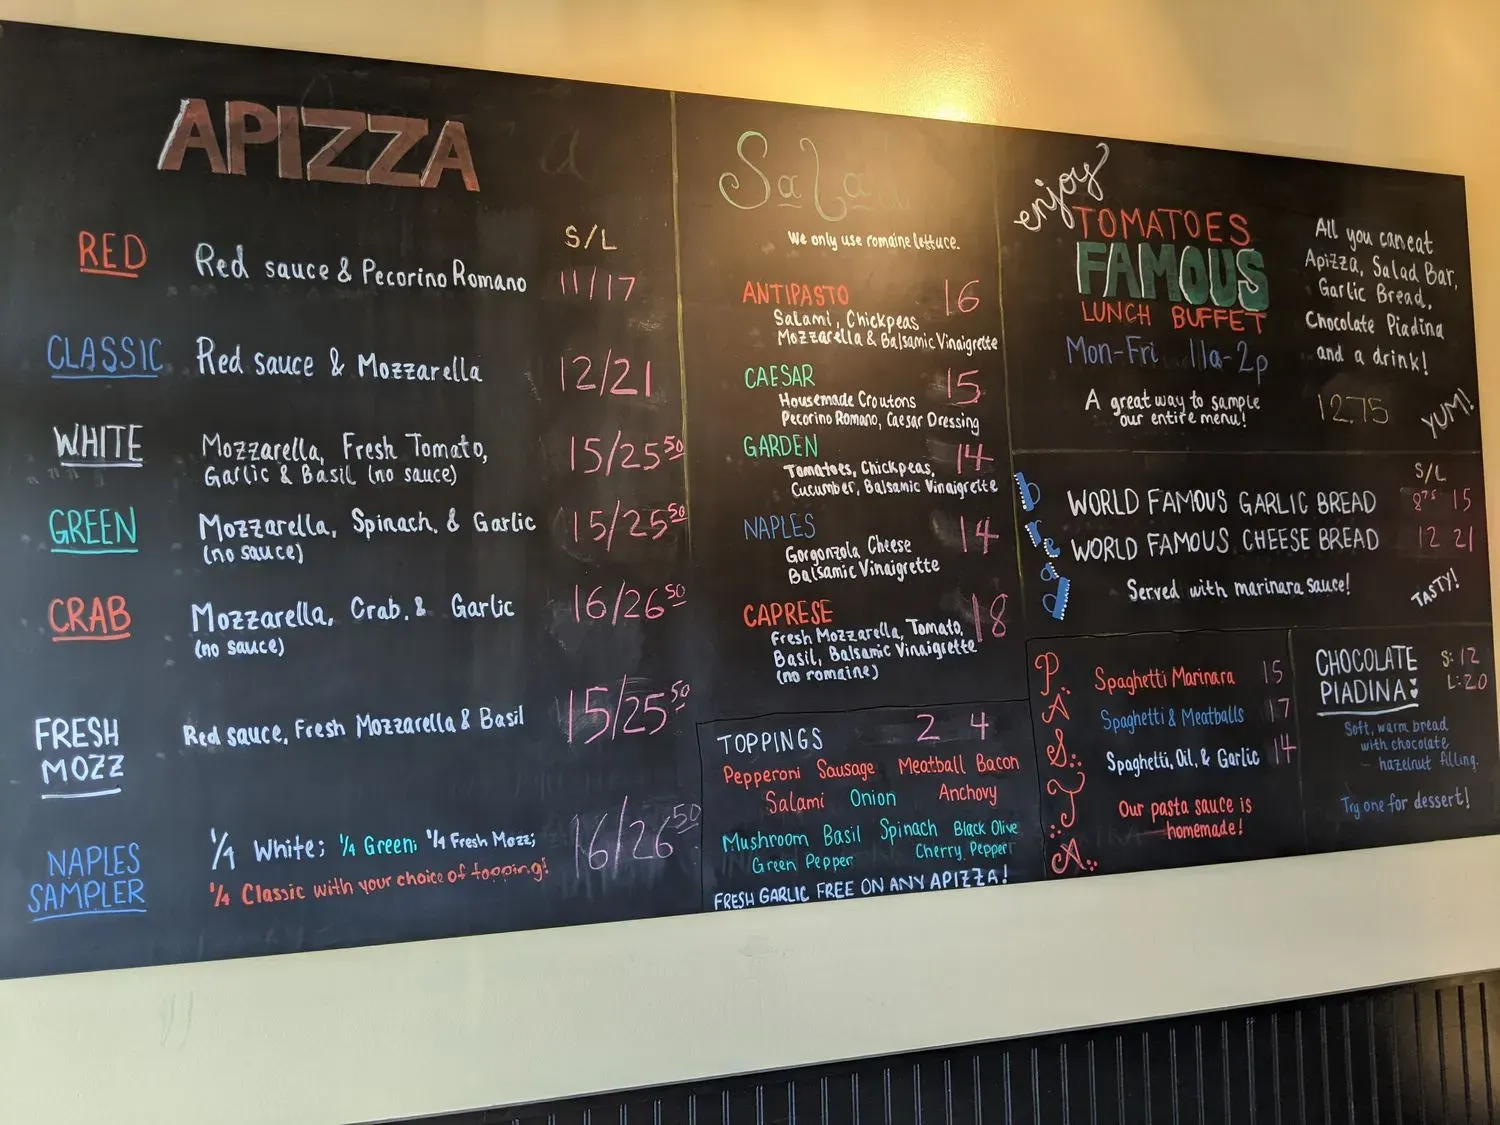 APIZZA
S/L
RED Red sauce & Pecorino Romano 11/17
CLASSIC Red sauce & Mozzarella 12/21
WHITE Mozzarella, Fresh Tomato, 15/25⁵⁰
Garlic & Basil (no sauce)
GREEN Mozzarella, Spinach, & Garlic 15/25⁵⁰
(no sauce)
CRAB Mozzarella, Crab, & Garlic 16/26⁵⁰
(no sauce)
FRESH
MOZZ
Red sauce, Fresh Mozzarella & Basil 15/25⁵⁰
NAPLES
SAMPLER
1/4 White; 1/4 Green; 1/4 Fresh Mozz; 16/26⁵⁰
1/4 Classic with your choice of topping!
Salad
We only use romaine lettuce.
ANTIPASTO 16
Salami, Chickpeas
Mozzarella & Balsamic Vinaigrette
CAESAR 15
Housemade Croutons
Pecorino Romano, Caesar Dressing
GARDEN 14
Tomatoes, Chickpeas,
Cucumber, Balsamic Vinaigrette
NAPLES 14
Gorgonzola Cheese
Balsamic Vinaigrette
CAPRESE 18
Fresh Mozzarella, Tomato,
Basil, Balsamic Vinaigrette
(no romaine)
TOPPINGS 2 4
Pepperoni Sausage Meatball Bacon
Salami Onion Anchovy
Mushroom Basil Spinach Black Olive
Green Pepper Cherry Pepper
FRESH GARLIC FREE ON ANY APIZZA!
enjoy
TOMATOES
FAMOUS
LUNCH BUFFET
Mon-Fri 11a-2p
A great way to sample
our entire menu!
All you can eat
Apizza, Salad Bar,
Garlic Bread,
Chocolate Piadina
and a drink!
12.75
YUM!
bread
S/L
WORLD FAMOUS GARLIC BREAD 8⁷⁵ 15
WORLD FAMOUS CHEESE BREAD 12 21
Served with marinara sauce!
TASTY!
PASTA
Spaghetti Marinara 15
Spaghetti & Meatballs 17
Spaghetti, Oil, & Garlic 14
Our pasta sauce is
homemade!
CHOCOLATE S: 12
PIADINA: L: 20
Soft, warm bread
with chocolate
hazelnut filling.
Try one for dessert!